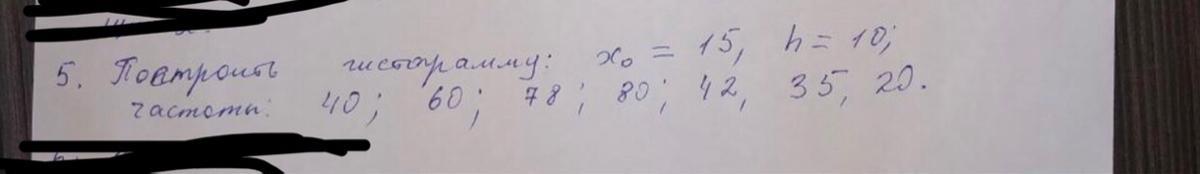 5. Построить гистограмму: x₀ = 15, h = 10;
частоты: 40; 60; 78; 80; 42, 35, 20.